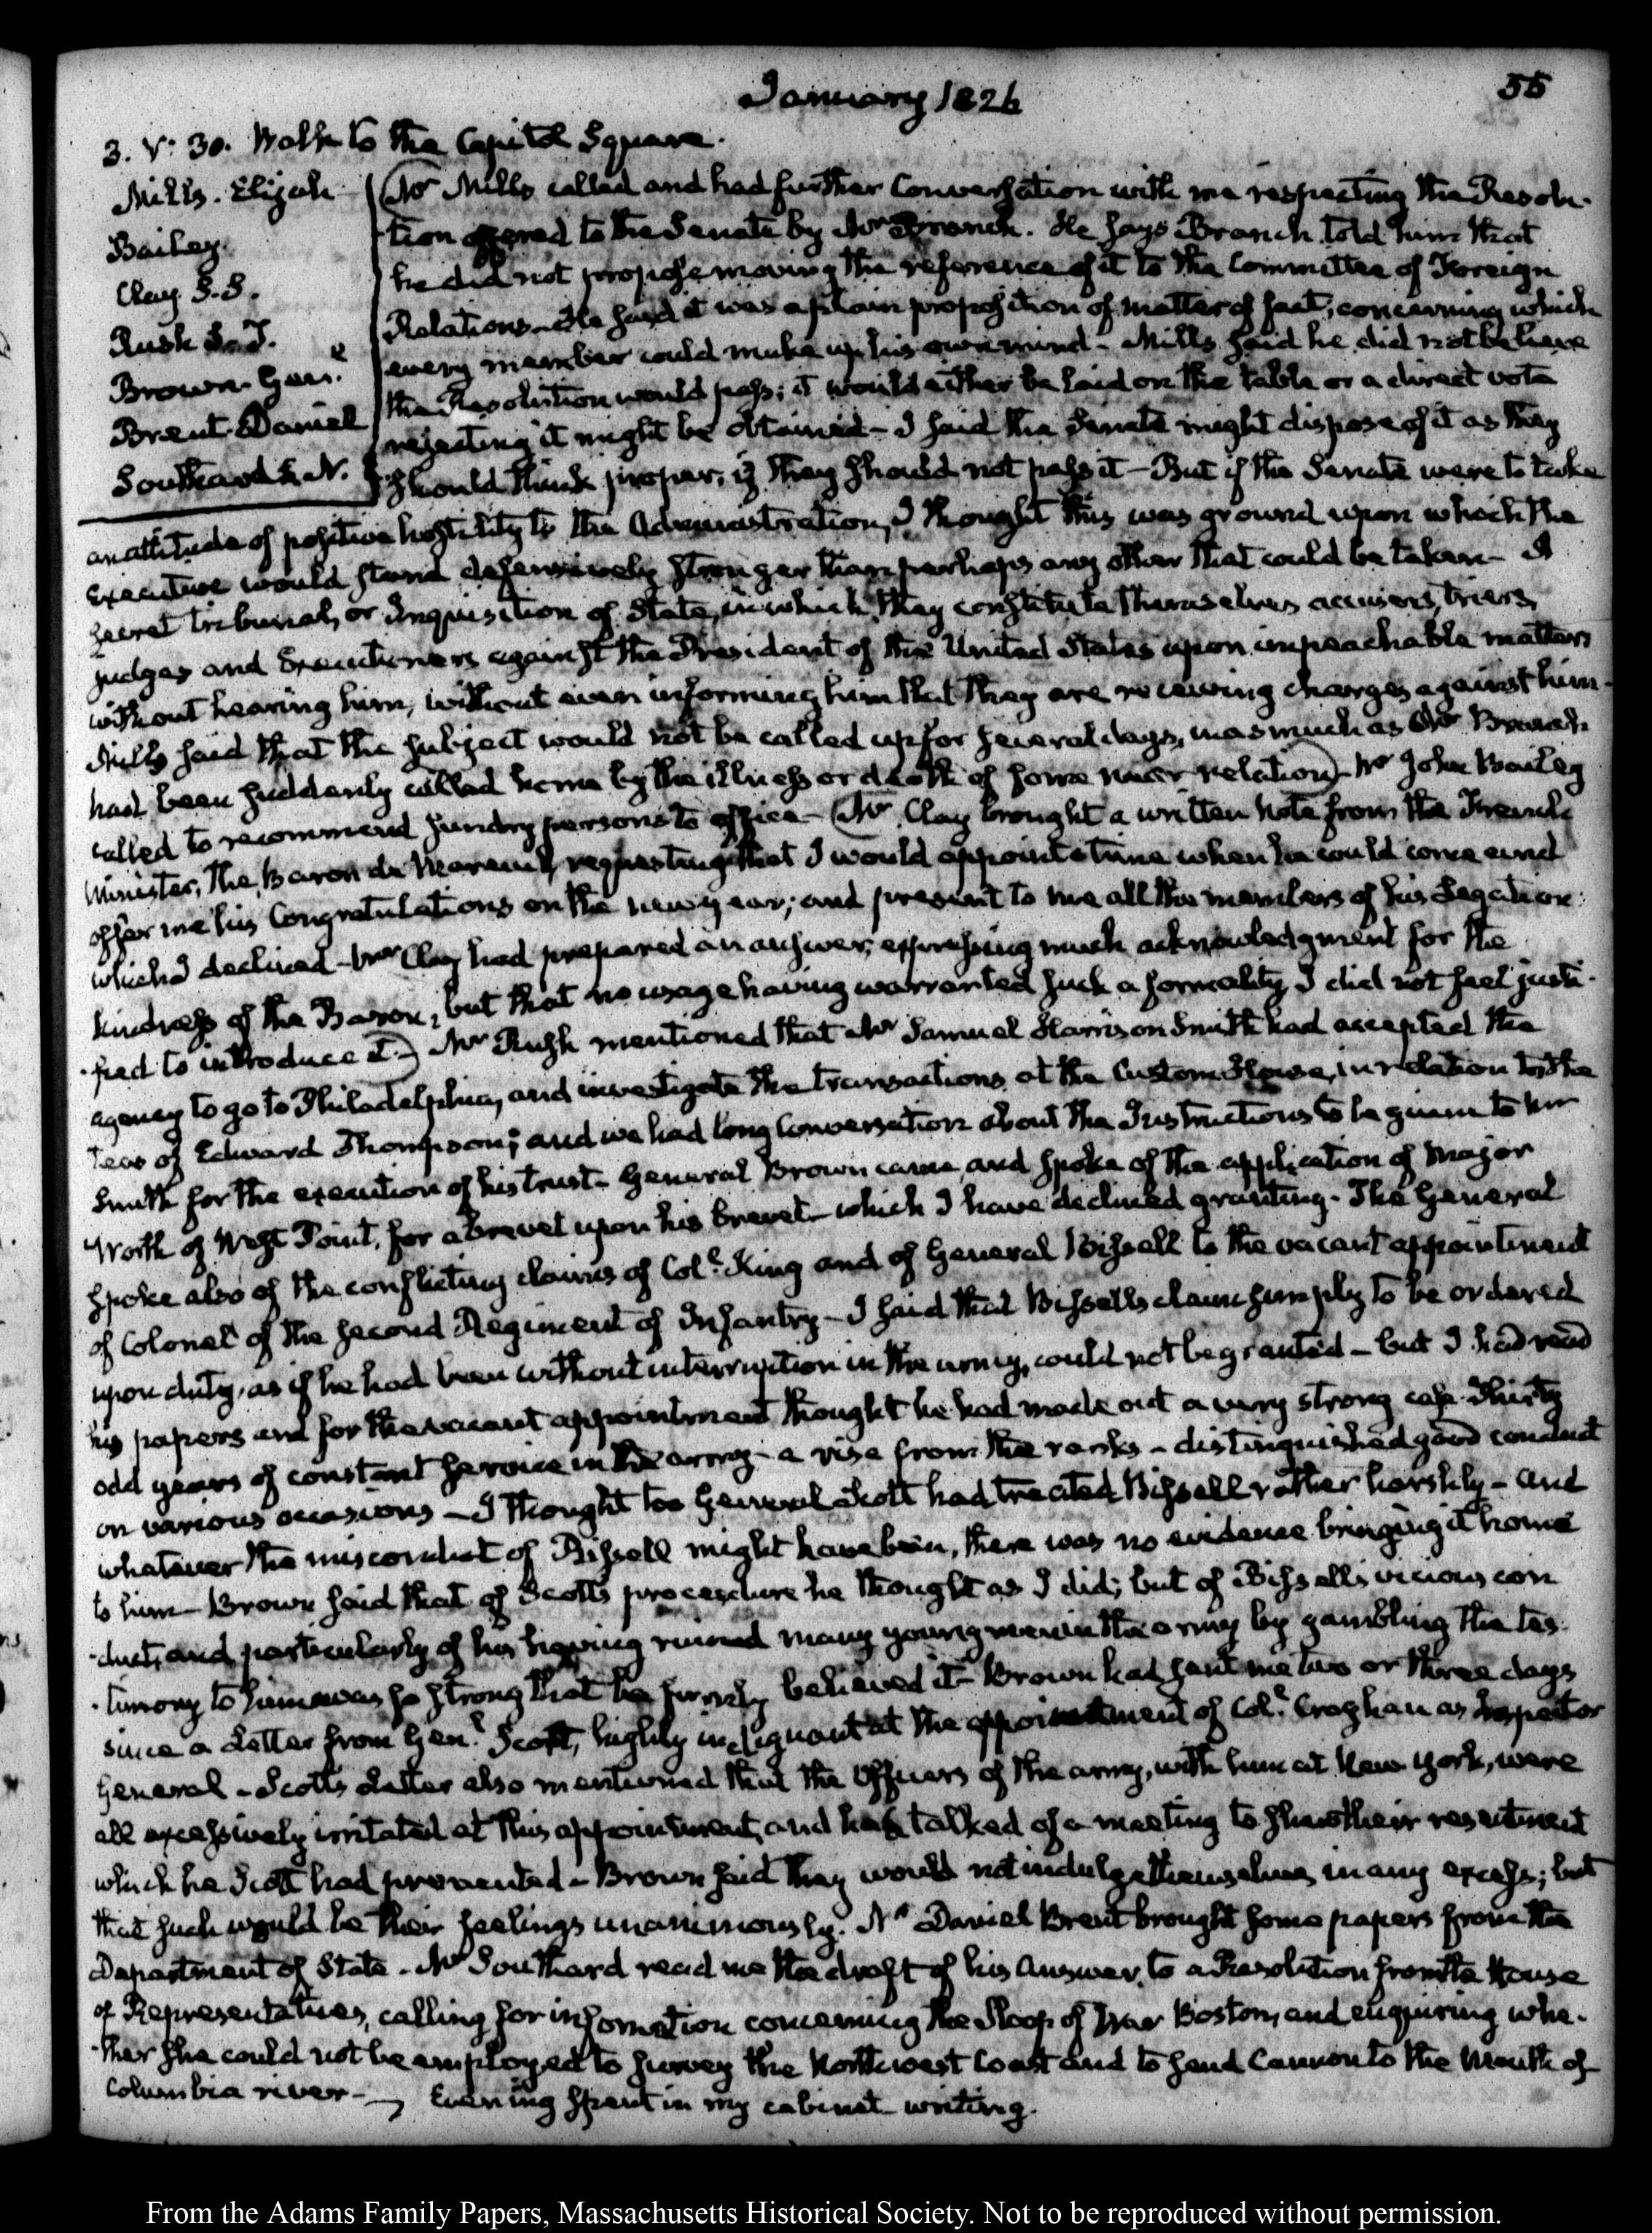 January 1826
55
3. V: 30. Walk to the Capitol Square.
Mills. Elijah
Bailey.
Clay S.S.
Rush S.T.
Brown. Genl.
Brent Daniel
Southard S. N.
Mr Mills called and had further Conversation with me respecting the Resolu-
tion offered to the Senate by Mr Branch. He says Branch told him that
he did not propose moving the reference of it to the Committee of Foreign
Relations. He said it was a plain proposition of matter of fact, concerning which
every member could make up his own mind - Mills said he did not believe
the Resolution would pass; it would either be laid on the table or a direct vote
rejecting it might be obtained - I said the Senate might dispose of it as they
should think proper, if they should not pass it - But if the Senate were to take
an attitude of positive hostility to the Administration, I thought this was ground upon which the
Executive would stand defensively stronger than perhaps any other that could be taken - A
secret tribunal, or Inquisition of State, in which they constitute themselves accusers, triers,
judges and Executioners against the President of the United States upon impeachable matters
without hearing him, without even informing him that they are receiving charges against him -
Mills said that the subject would not be called up for several days, inasmuch as Mr Branch
had been suddenly called home by the illness or death of some near relation - Mr John Bailey
called to recommend sundry persons to office - Mr Clay brought a written Note from the French
Minister, the Baron de Mareuil, requesting that I would appoint a time when he could come and
offer me his Congratulations on the new year; and present to me all the members of his Legation:
which I declined - Mr Clay had prepared an answer, expressing much acknowledgment for the
kindness of the Baron, but that no usage having warranted such a formality, I did not feel justi-
-fied to introduce it - Mr Rush mentioned that Mr Samuel Harrison Smith had accepted the
agency to go to Philadelphia, and investigate the transactions at the Custom House, in relation to the
teas of Edward Thompson; and we had long Conversation about the Instructions to be given to Mr
Smith for the execution of his trust - General Brown came, and spoke of the application of Major
Worth of West Point, for a brevet upon his brevet - which I have declined granting - The General
spoke also of the conflicting claims of Coll. King and of General Bissell to the vacant appointment
of Colonel of the second Regiment of Infantry - I said that Bissell's claim simply to be ordered
upon duty, as if he had been without interruption in the army, could not be granted - but I had read
his papers and for the vacant appointment thought he had made out a very strong case. Thirty
odd years of constant service in the army - a rise from the ranks - distinguished good conduct
on various occasions - I thought too General Scott had treated Bissell rather harshly - and
whatever the misconduct of Bissell might have been, there was no evidence bringing it home
to him - Brown said that of Scott's procedure he thought as I did; but of Bissell's vicious con
-duct, and particularly of his having ruined many young men in the army by gambling the tes-
-timony to him was so strong that he firmly believed it - Brown had sent me two or three days
since a Letter from Genl. Scott, highly indignant at the appointment of Coll. Croghan as Inspector
General - Scott's Letter also mentioned that the Officers of the army, with him at New York, were
all excessively irritated at this appointment, and had talked of a meeting to shew their resentment
which he Scott had prevented - Brown said they would not indulge themselves in any excess; but
that such would be their feelings unanimously. Mr Daniel Brent brought some papers from the
Department of State - Mr Southard read me the draft of his Answer, to a Resolution from the House
of Representatives, calling for information concerning the Sloop of War Boston, and enquiring whe-
-ther she could not be employed to survey the Northwest Coast and to send Cannon to the Mouth of
Columbia river - Evening spent in my cabinet writing.
From the Adams Family Papers, Massachusetts Historical Society. Not to be reproduced without permission.